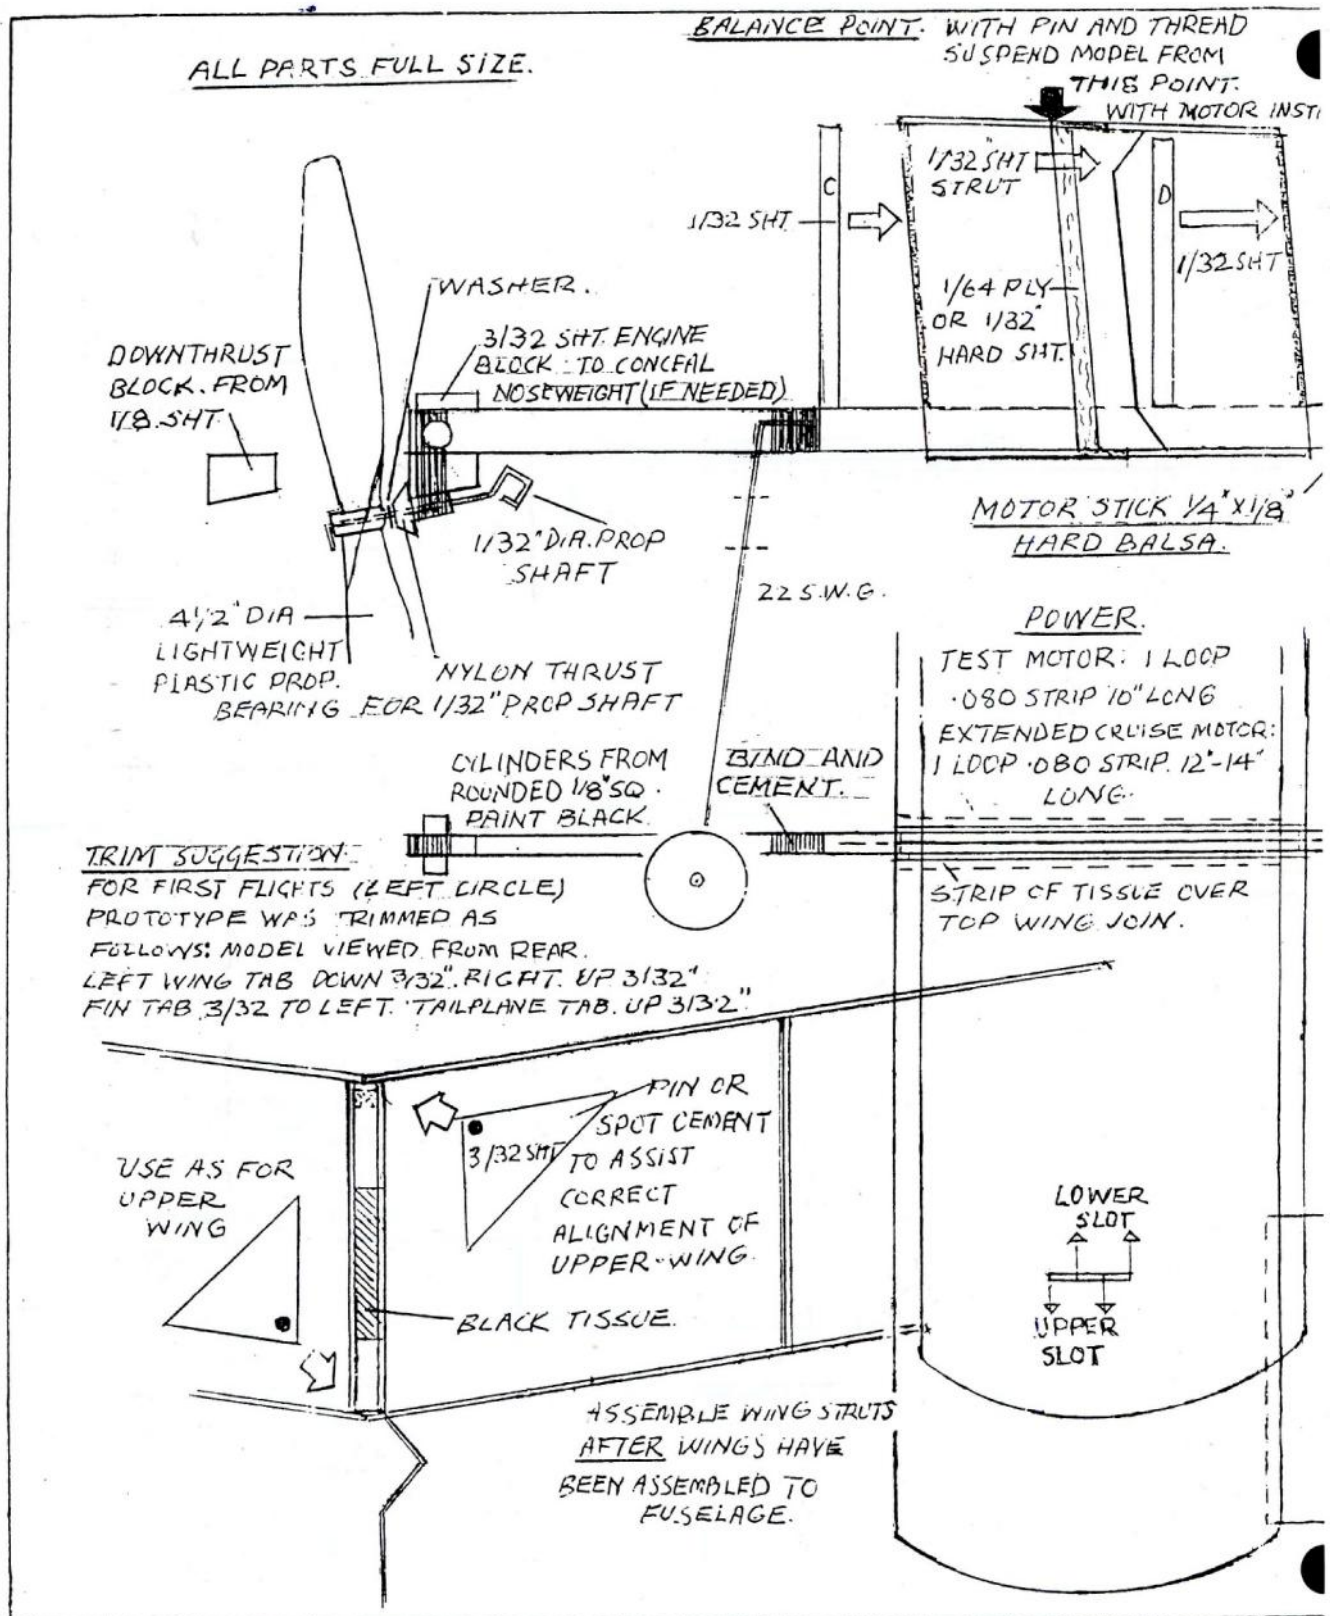 BALANCE POINT. WITH PIN AND THREAD
SUSPEND MODEL FROM
THIS POINT.
WITH MOTOR INST
ALL PARTS FULL SIZE.
1/32" SHT
STRUT
C
D
1/32 SHT
1/32 SHT
1/64 PLY
OR 1/32"
HARD SHT.
WASHER.
3/32 SHT. ENGINE
BLOCK TO CONCEAL
NOSEWEIGHT (IF NEEDED)
DOWNTHRUST
BLOCK. FROM
1/8 SHT
MOTOR STICK 1/4" X 1/8"
HARD BALSA.
1/32" DIA. PROP
SHAFT
22 S.W.G.
4 1/2" DIA
LIGHTWEIGHT
PLASTIC PROP.
NYLON THRUST
BEARING FOR 1/32" PROP SHAFT
POWER.
TEST MOTOR: 1 LOOP
.080 STRIP 10" LONG
EXTENDED CRUISE MOTOR:
1 LOOP .080 STRIP. 12"-14"
LONG.
CYLINDERS FROM
ROUNDED 1/8" SQ.
PAINT BLACK.
BIND AND
CEMENT.
STRIP OF TISSUE OVER
TOP WING JOIN.
TRIM SUGGESTION
FOR FIRST FLIGHTS (LEFT CIRCLE)
PROTOTYPE WAS TRIMMED AS
FOLLOWS: MODEL VIEWED FROM REAR.
LEFT WING TAB DOWN 3/32". RIGHT. UP 3/32"
FIN TAB 3/32 TO LEFT. TAILPLANE TAB. UP 3/32"
PIN OR
SPOT CEMENT
TO ASSIST
CORRECT
ALIGNMENT OF
UPPER-WING.
3/32 SHT
USE AS FOR
UPPER
WING
BLACK TISSUE.
LOWER
SLOT
UPPER
SLOT
ASSEMBLE WING STRUTS
AFTER WINGS HAVE
BEEN ASSEMBLED TO
FUSELAGE.